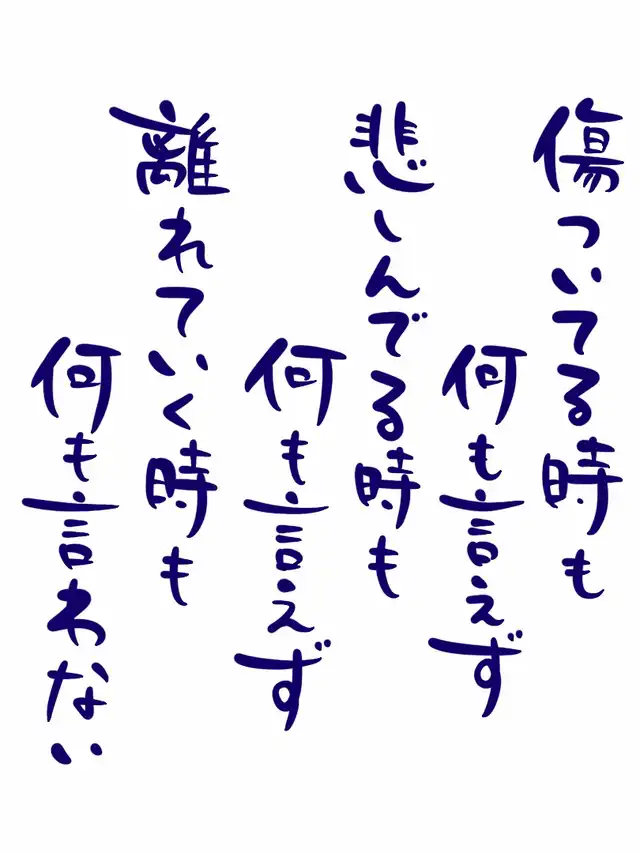 傷ついてる時も
何も言えず
悲しんでる時も
何も言えず
離れていく時も
何も言わない